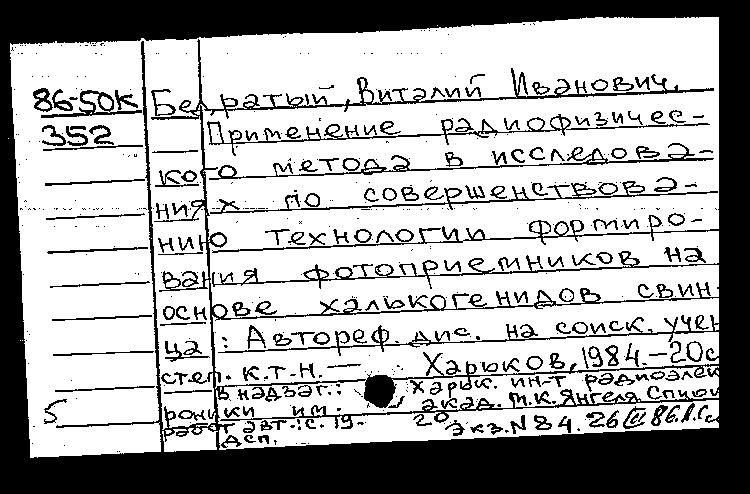 86-50К Бедратый, Виталий Иванович.
352 Применение радиофизичес-
кого метода в исследова-
ниях по совершенствова-
нию технологии формиро-
вания фотоприемников на
основе халькогенидов свин-
ца : Автореф. дис. на соиск. учен
степ. к.т.н. — Харьков, 1984.-20с
В надзаг.: Харьк. ин-т радиоэлек
5 роники им. акад. М.К. Янгеля Список
работ авт.: с. 19-20
Дсп. Экз. N 84. 26 86.